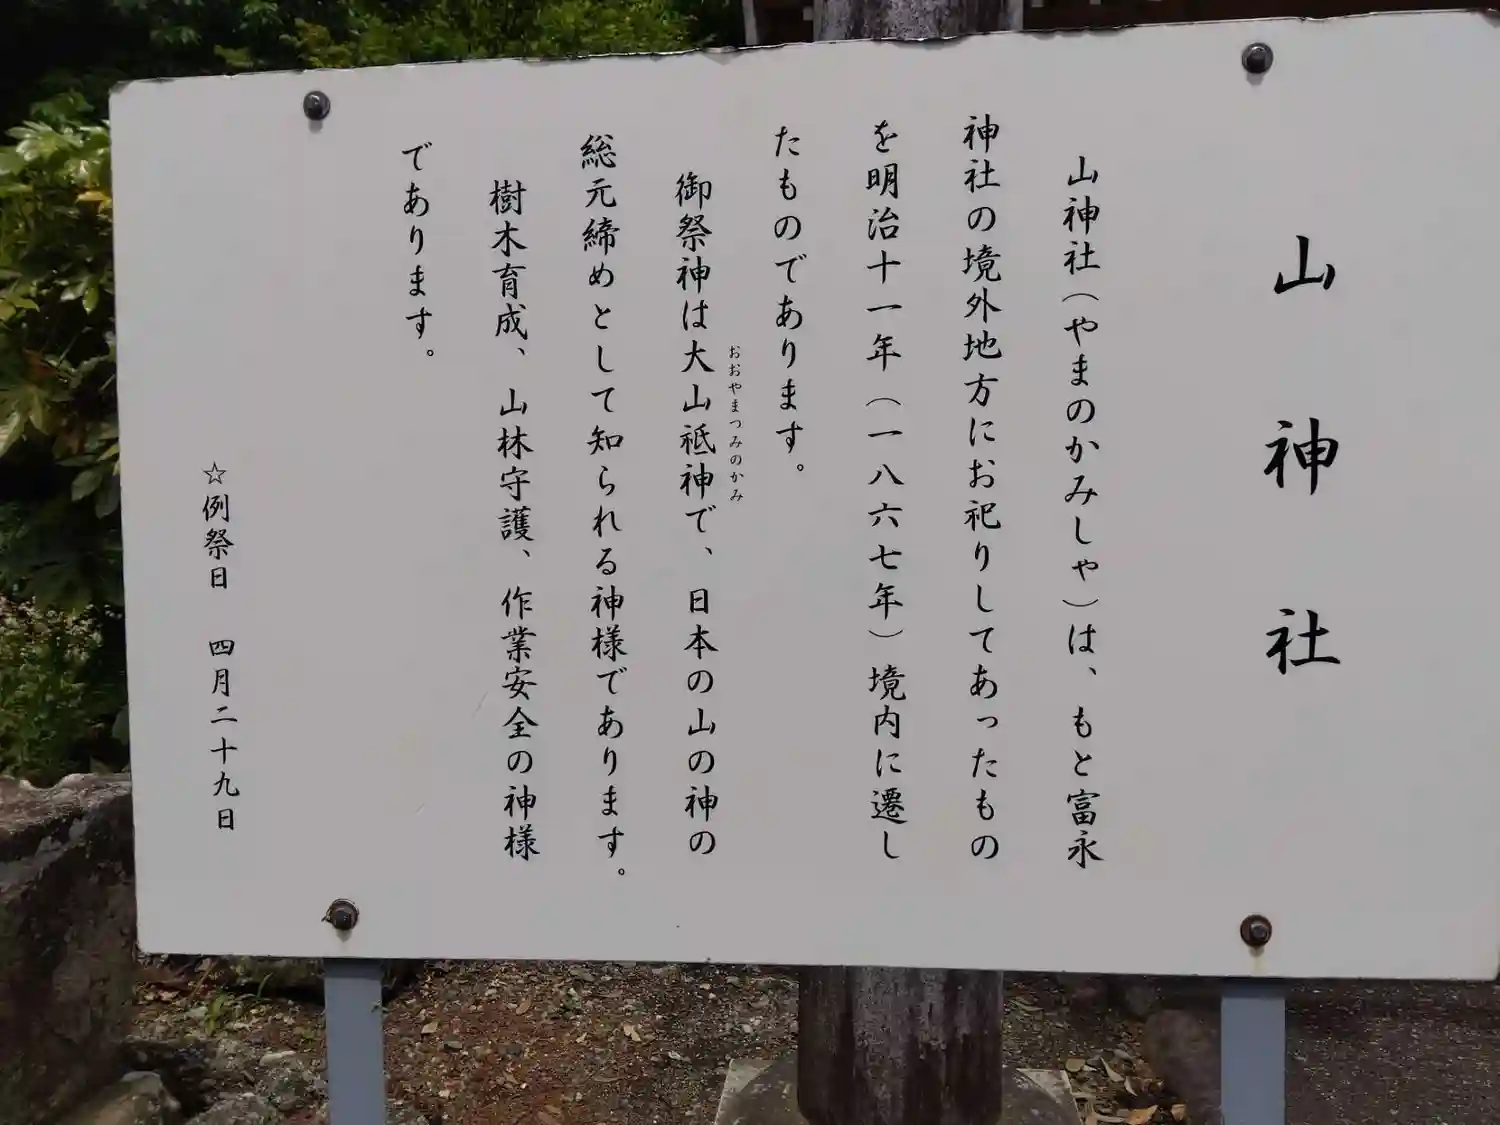 山神社
山神社（やまのかみしゃ）は、もと富永
神社の境外地方にお祀りしてあったもの
を明治十一年（一八六七年）境内に遷し
たものであります。
おおやまつみのかみ
御祭神は大山祗神で、日本の山の神の
総元締めとして知られる神様であります。
樹木育成、山林守護、作業安全の神様
であります。
☆例祭日　四月二十九日